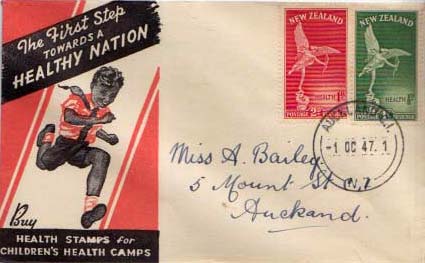 The First Step
TOWARDS A
HEALTHY NATION
Buy
HEALTH STAMPS for
CHILDREN'S HEALTH CAMPS
NEW ZEALAND
HEALTH 1D
POSTAGE 2D REVENUE
NEW ZEALAND
HEALTH
POSTAGE REVENUE
AUCKLAND C.1.
-1 OC 47.1
N.Z
Miss A. Barley
5 Mount St
Auckand.